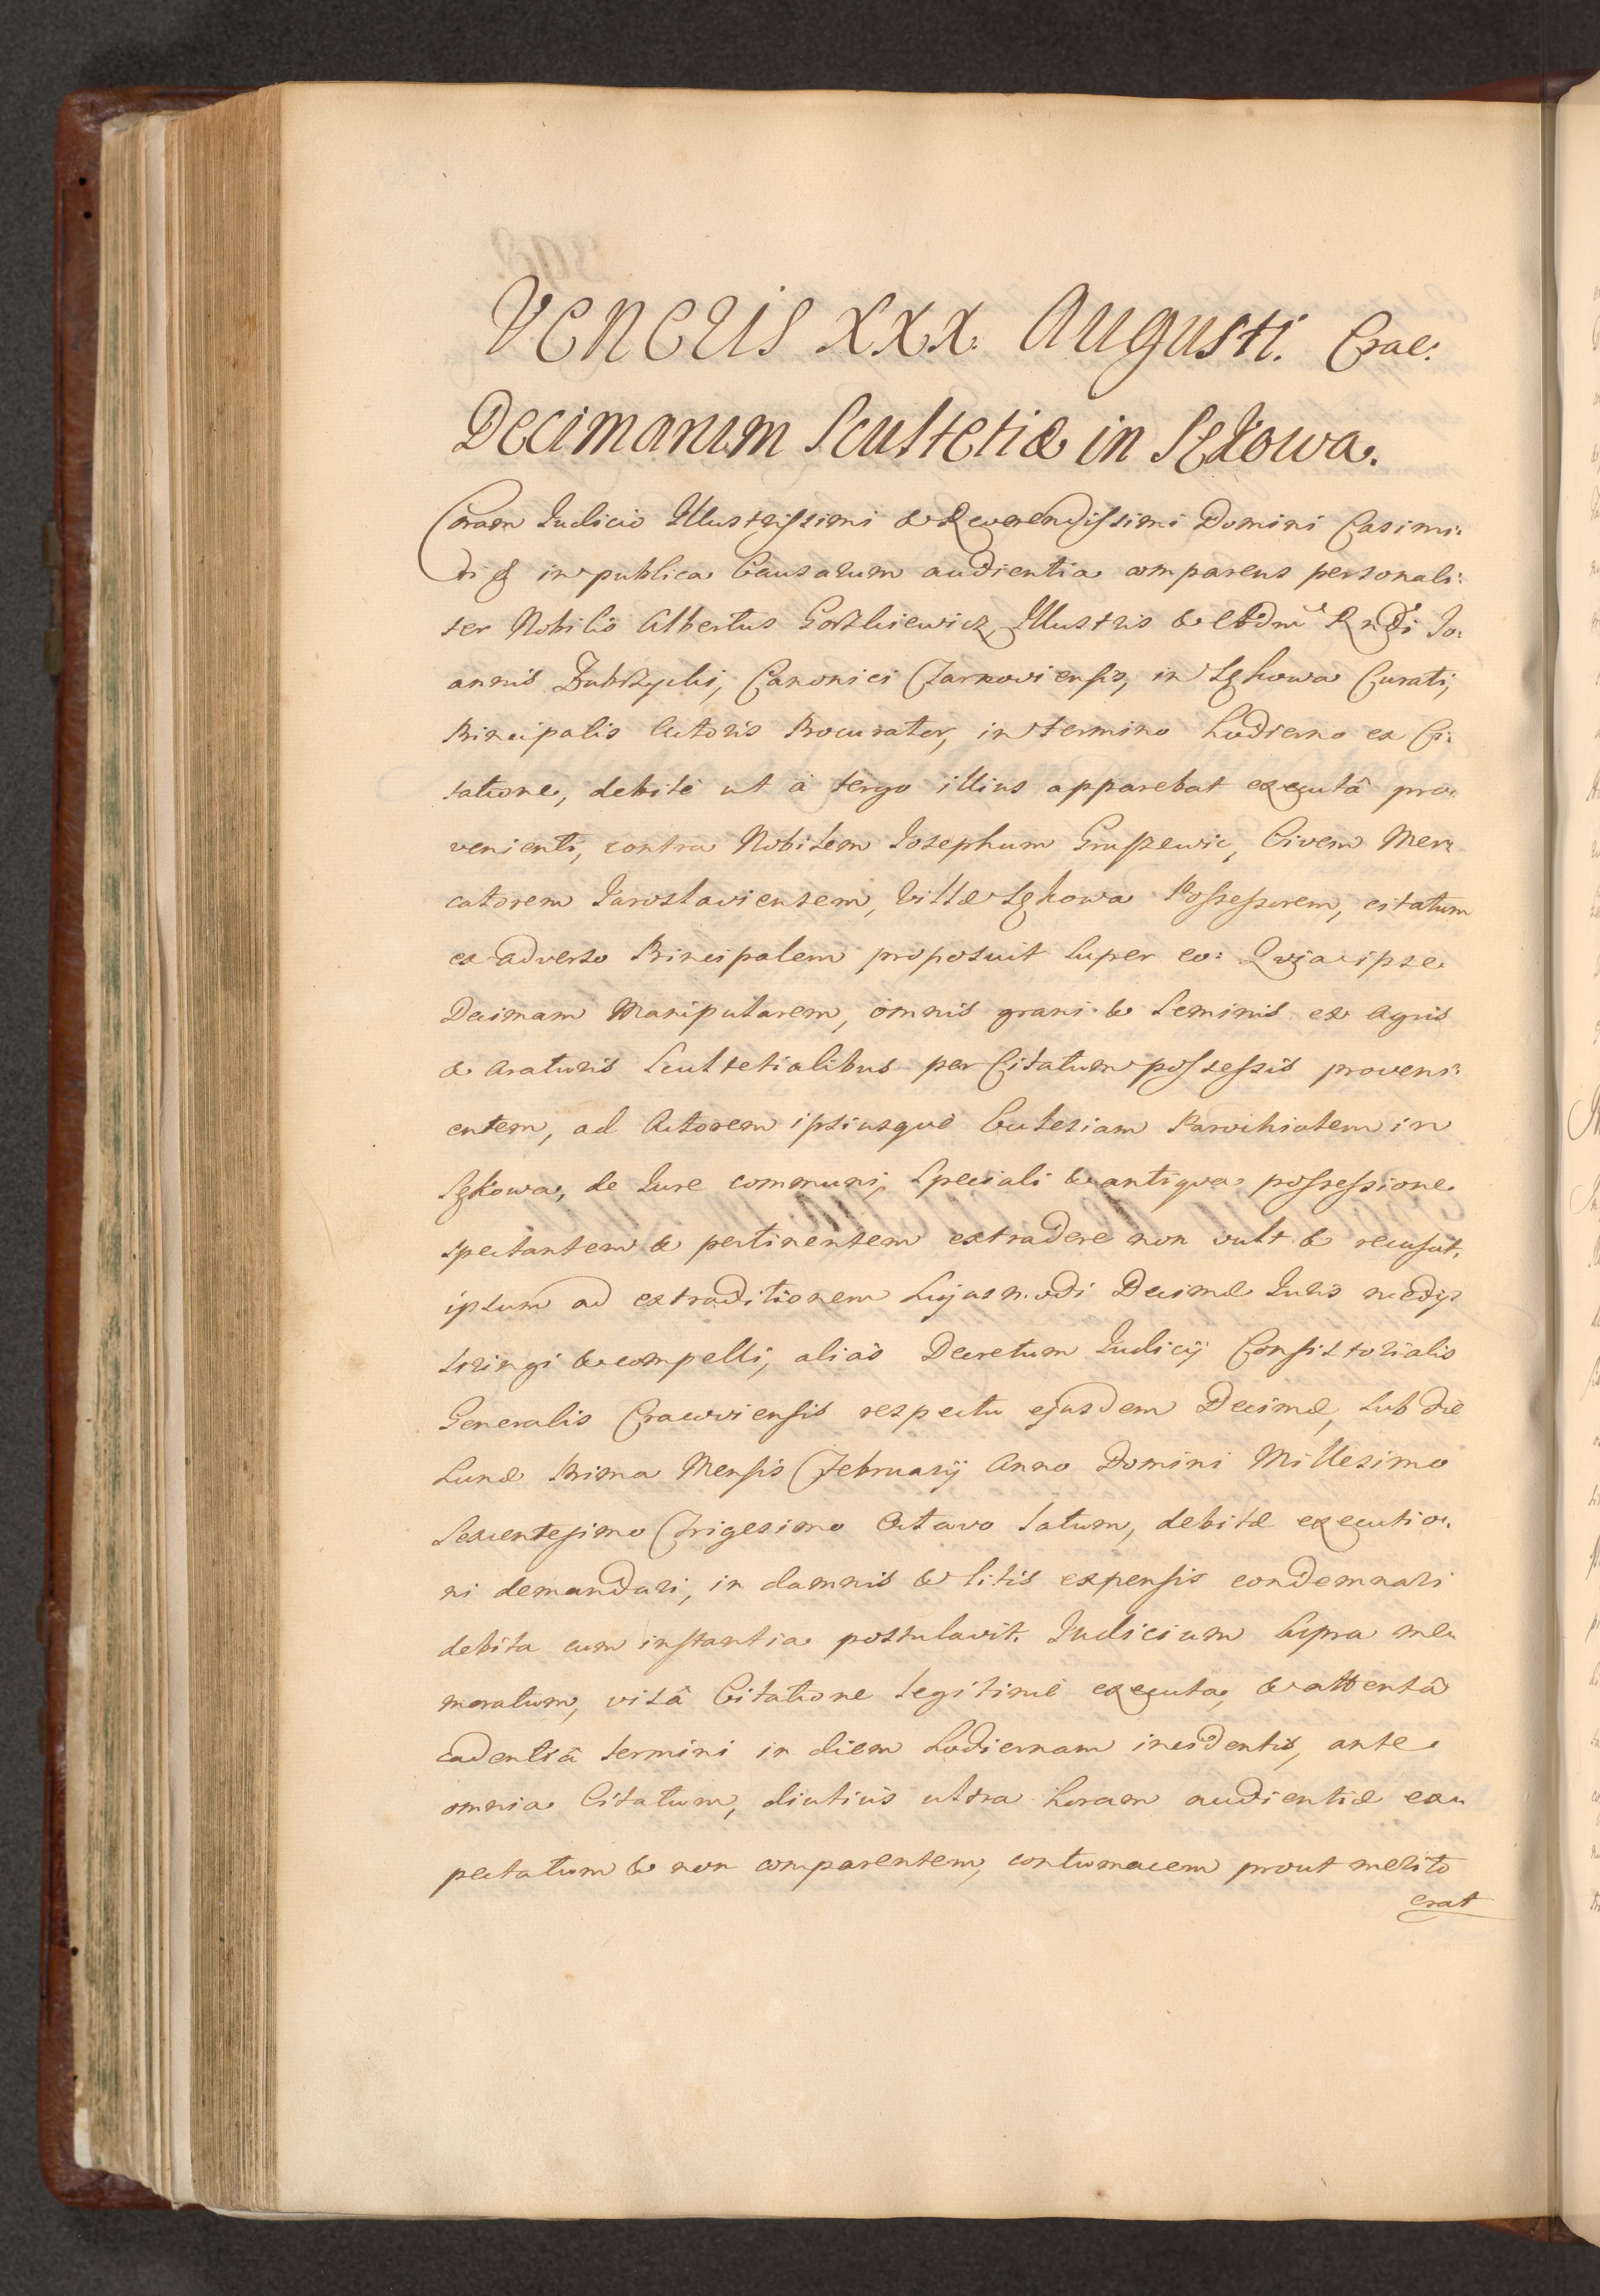 Veneris XXX. Augusti. Crac:
Decimarum Scultetiæ in Sękowa.
Coram Judicio Illustrissimi & Reverendissimi Domini Casimi:
ri & in publica Causarum audientia comparens personali:
ter Nobilis Albertus Gorzkiewicz, Illustris & Rndi Jo:
annis Dubrzycki, Canonici Tarnoviensis, in Sękowa Curati,
Principalis Actoris Procurator, in termino hodierno ex Ci:
tatione, debitè ut à tergo illius apparebat executâ pro:
venienti, contra Nobilem Josephum Gruszewic, Civem Mer:
catorem Jaroslaviensem, Villæ Sękowa Possessorem, citatum
ex adverso Principalem proposuit super eo: Quia ipse
Decimam Manipularem, omnis grani & seminis ex agris
& araturis Scultetialibus per Citatum possessis proveni:
entem, ad Actorem ipsiusque Ecclesiam Parochialem in
Sękowa, de Jure communi, speciali & antiqua possessione
spectantem & pertinentem extradere non vult & recusat,
ipsum ad extraditionem hujusmodi Decimæ Juris medijs
stringi & compelli, aliàs Decretum Judicij Consistorialis
Generalis Cracoviensis respectu ejusdem Decimæ, sub die
Lunæ Prima Mensis Februarij Anno Domini Millesimo
Sexcentesimo Trigesimo Octavo latum, debitæ executio:
ni demandari, in damnis & litis expensis condemnari
debita cum instantia postulavit. Judicium supra me:
moratum, visâ Citatione legitimè executa, & attentâ
cadentiâ termini in diem hodiernam incidentis, ante
omnia Citatum, diutiùs ultra horam audientiæ ex:
pectatum & non comparentem, contumacem prout merito
erat